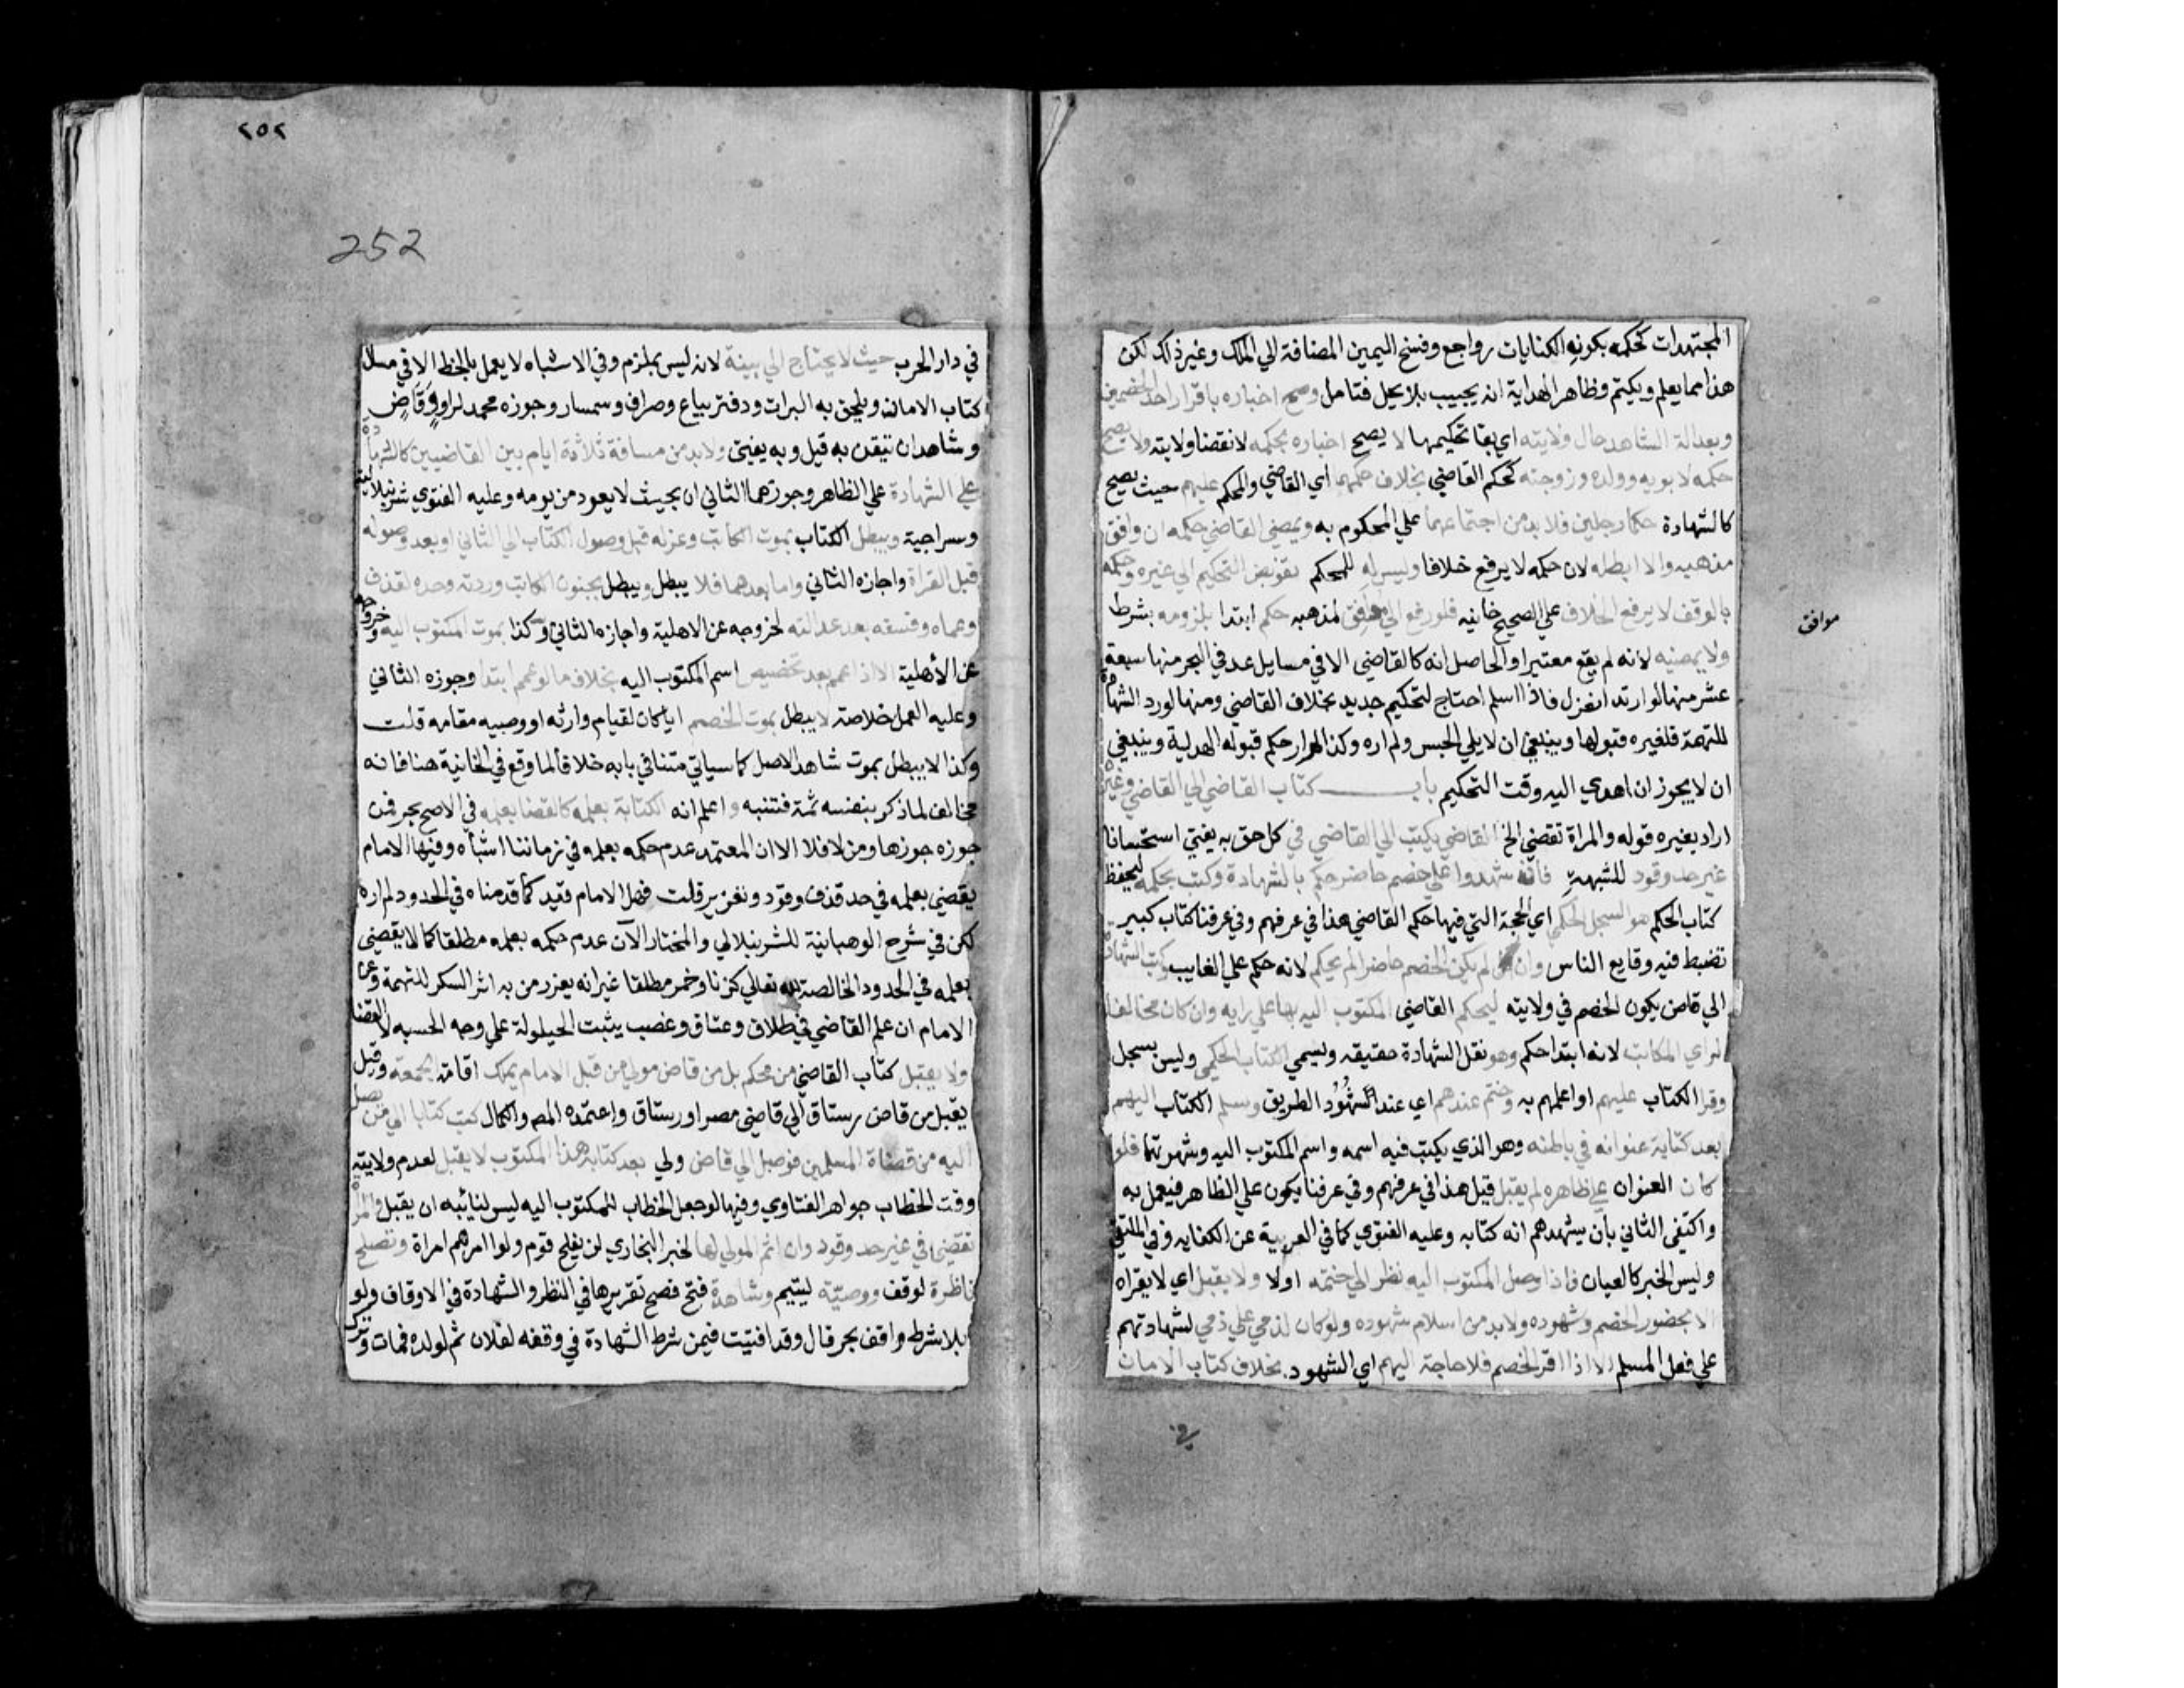 المجتهدات كحكمه بكونه الكنايات رواجع وفسخ اليمين المضافة الي الملك وغير ذلك لكن
هذا مما يعلم ويكتم وظاهر الهداية انه يجيب بلا يحل فتامل وصح اخباره باقرار احد الخصمين
وبعدالة الشاهد حال ولايته اي بقا تحكيمهما لا يصح اخباره بحكمه لانقضا ولايته ولا يصح
حكمه لابويه وولده وزوجته كحكم القاضي بخلاف حكمهما اي القاضي والمحكم عليهم حيث يصح
كالشهادة حكما رجلين فلا بد من اجتماعهما علي المحكوم به ويمضي القاضي حكمه ان وافق
مذهبه والا ابطله لان حكمه لا يرفع خلافا وليس له للمحكم تفويض التحكيم الي غيره وحكمه
بالوقف لا يرفع الخلاف علي الصحيح خانيه فلو رفع الي موافق لمذهبه حكم ابتدا بلزومه بشرط
موافق
ولا يمضيه لانه لم يقع معتبرا والحاصل انه كالقاضي الا في مسايل عد في البحر منها سبعة
عشر منها لو ارتد انعزل فاذا اسلم احتاج لتحكيم جديد بخلاف القاضي ومنها لو رد الشهادة
للتهمة فلغيره قبولها وينبغي ان لا يلي الحبس ولم اره وكذا لم ار حكم قبوله الهدية وينبغي
ان لا يجوز ان اهدي اليه وقت التحكيم باب كتاب القاضي الي القاضي وغيره
اراد بغيره قوله والمراة تقضي الخ القاضي يكتب الي القاضي في كل حق به يفتي استحسانا
غير حد وقود للشبهة فان شهدوا علي خصم حاضر حكم بالشهادة وكتب بحكمه ليحفظ
كتاب الحكم هو السجل الحكمي اي الحجة التي فيها حكم القاضي هذا في عرفهم وفي عرفنا كتاب كبير
تضبط فيه وقايع الناس وان لم يكن الخصم حاضرا لم يحكم لانه حكم علي الغايب وكتب الشهادة
الي قاض يكون الخصم في ولايته ليحكم القاضي المكتوب اليه بها علي رايه وان كان مخالفا
لراي الكاتب لانه ابتدا حكم وهو نقل الشهادة حقيقه ويسمي الكتاب الحكمي وليس بسجل
وقرا الكتاب عليهم او اعلمهم به وختم عندهم اي عند الشهود الطريق وسلم الكتاب اليهم
بعد كتابة عنوانه في باطنه وهو الذي يكتب فيه اسمه واسم المكتوب اليه وشهرتهما فلو
كان العنوان علي ظاهره لم يقبل قيل هذا في عرفهم وفي عرفنا يكون علي الظاهر فيعمل به
واكتفي الثاني بان يشهدهم انه كتابه وعليه الفتوي كما في العزمية عن الكفايه وفي الملتقي
وليس الخبر كالعيان فاذا وصل المكتوب اليه نظر الي ختمه اولا ولا يقبل اي لا يقراه
الا بحضور الخصم وشهوده ولا بد من اسلام شهوده ولو كان لذمي علي ذمي لشهادتهم
علي فعل المسلم الا اذا اقر الخصم فلا حاجة اليهم اي الشهود. بخلاف كتاب الامان
في
٢٥٢
252
في دار الحرب حيث لا يحتاج الي بينة لانه ليس بملزم وفي الاشباه لا يعمل بالخط الا في مسال
كتاب الامان ويلحق به البرات ودفتر بياع وصراف وسمسار وجوزه محمد لراو وقاض
وشاهد ان تيقن به قيل وبه يفتي ولا بد من مسافة ثلاثة ايام بين القاضيين كالشهادة
علي الشهادة علي الظاهر وجوزهما الثاني ان بحيث لا يعود من يومه وعليه الفتوي شرنبلالية
وسراجية ويبطل الكتاب بموت الكاتب وعزله قبل وصول الكتاب الي الثاني او بعد وصوله
قبل القراة واجازه الثاني واما بعدهما فلا يبطل ويبطل بجنون الكاتب وردته وحده لقذف
وعماه وفسقه بعد عدالته لخروجه عن الاهلية واجازه الثاني وكذا بموت المكتوب اليه وخروجه
عن الأهلية الا اذا عمم بعد تخصيص اسم المكتوب اليه بخلاف ما لو عمم ابتدا وجوزه الثاني
وعليه العمل خلاصة لا يبطل بموت الخصم ايا كان لقيام وارثه او وصيه مقامه قلت
وكذا لا يبطل بموت شاهد الاصل كما سياتي متنا في بابه خلافا لما وقع في الخانية هنا فانه
مخالف لما ذكر بنفسه ثمة فتنبه واعلم انه الكتابة بعلمه كالقضا بعلمه في الاصح بحر فمن
جوزه جوزها ومن لا فلا الا ان المعتمد عدم حكمه بعلمه في زماننا اشباه وفيها الامام
يقضي بعلمه في حد قذف وقود وتعزير قلت فهل الامام قيد كما قدمناه في الحدود لم اره
لكن في شرح الوهبانية للشرنبلالي والمختار الآن عدم حكمه بعلمه مطلقا كما لا يقضي
بعلمه في الحدود الخالصة لله تعالي كزنا وخمر مطلقا غير انه يعزر من به اثر السكر للتهمة وعن
الامام ان علم القاضي في طلاق وعتاق وغصب يثبت الحيلولة علي وجه الحسبه لا القضا
ولا يقبل كتاب القاضي من محكم بل من قاض مولي من قبل الامام يملك اقامة الجمعة وقيل
يقبل من قاض رستاق الي قاضي مصر او رستاق واعتمده المص والكمال كتب كتابا الي من يصل
اليه من قضاة المسلمين فوصل الي قاض ولي بعد كتابة هذا المكتوب لا يقبل لعدم ولايته
وقت الخطاب جواهر الفتاوي وفيها لو جعل الخطاب للمكتوب اليه ليس لنائبه ان يقبل والمراة
تقضي في غير حد وقود وان اثم المولي لها لخبر البخاري لن يفلح قوم ولوا امرهم امراة وتصلح
ناظرة لوقف ووصية ليتيم وشاهدة فتح فصح تقريرها في النظر والشهادة في الاوقاف ولو
بلا شرط واقف بحر قال وقد افتيت فيمن شرط الشهادة في وقفه لفلان ثم لولده فمات وترك